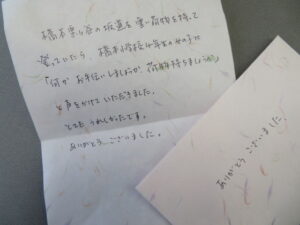 橋本
の坂道を重い荷物を持って
登っていたら、橋本小学校4年生の女の子に
「何かお手伝いしましょうか、荷物持ちましょうか」
と声をかけていただきました。
とても うれしかったです。
ありがとう ございました。
ありがとう ございました